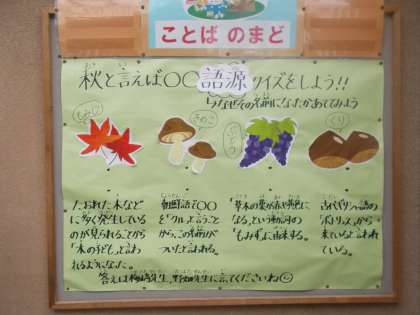 ことば のまど
秋と言えば〇〇 語源 クイズをしよう!!
なぜその名前になったかあててみよう
もみじ
きのこ
ぶどう
くり
たおれた木など
に多く発生している
のが見られることから
「木の子」と、言わ
れるようになった。
朝鮮語で〇〇
を「クル」と言うこと
から、この名前が
ついたと言われる。
「草木の葉が赤や黄色に
なる」という動詞の
「もみず」に由来する。
古代ギリシャ語の
から
来ていると言われ
ている。
答えは 先生、 先生に言ってくださいね